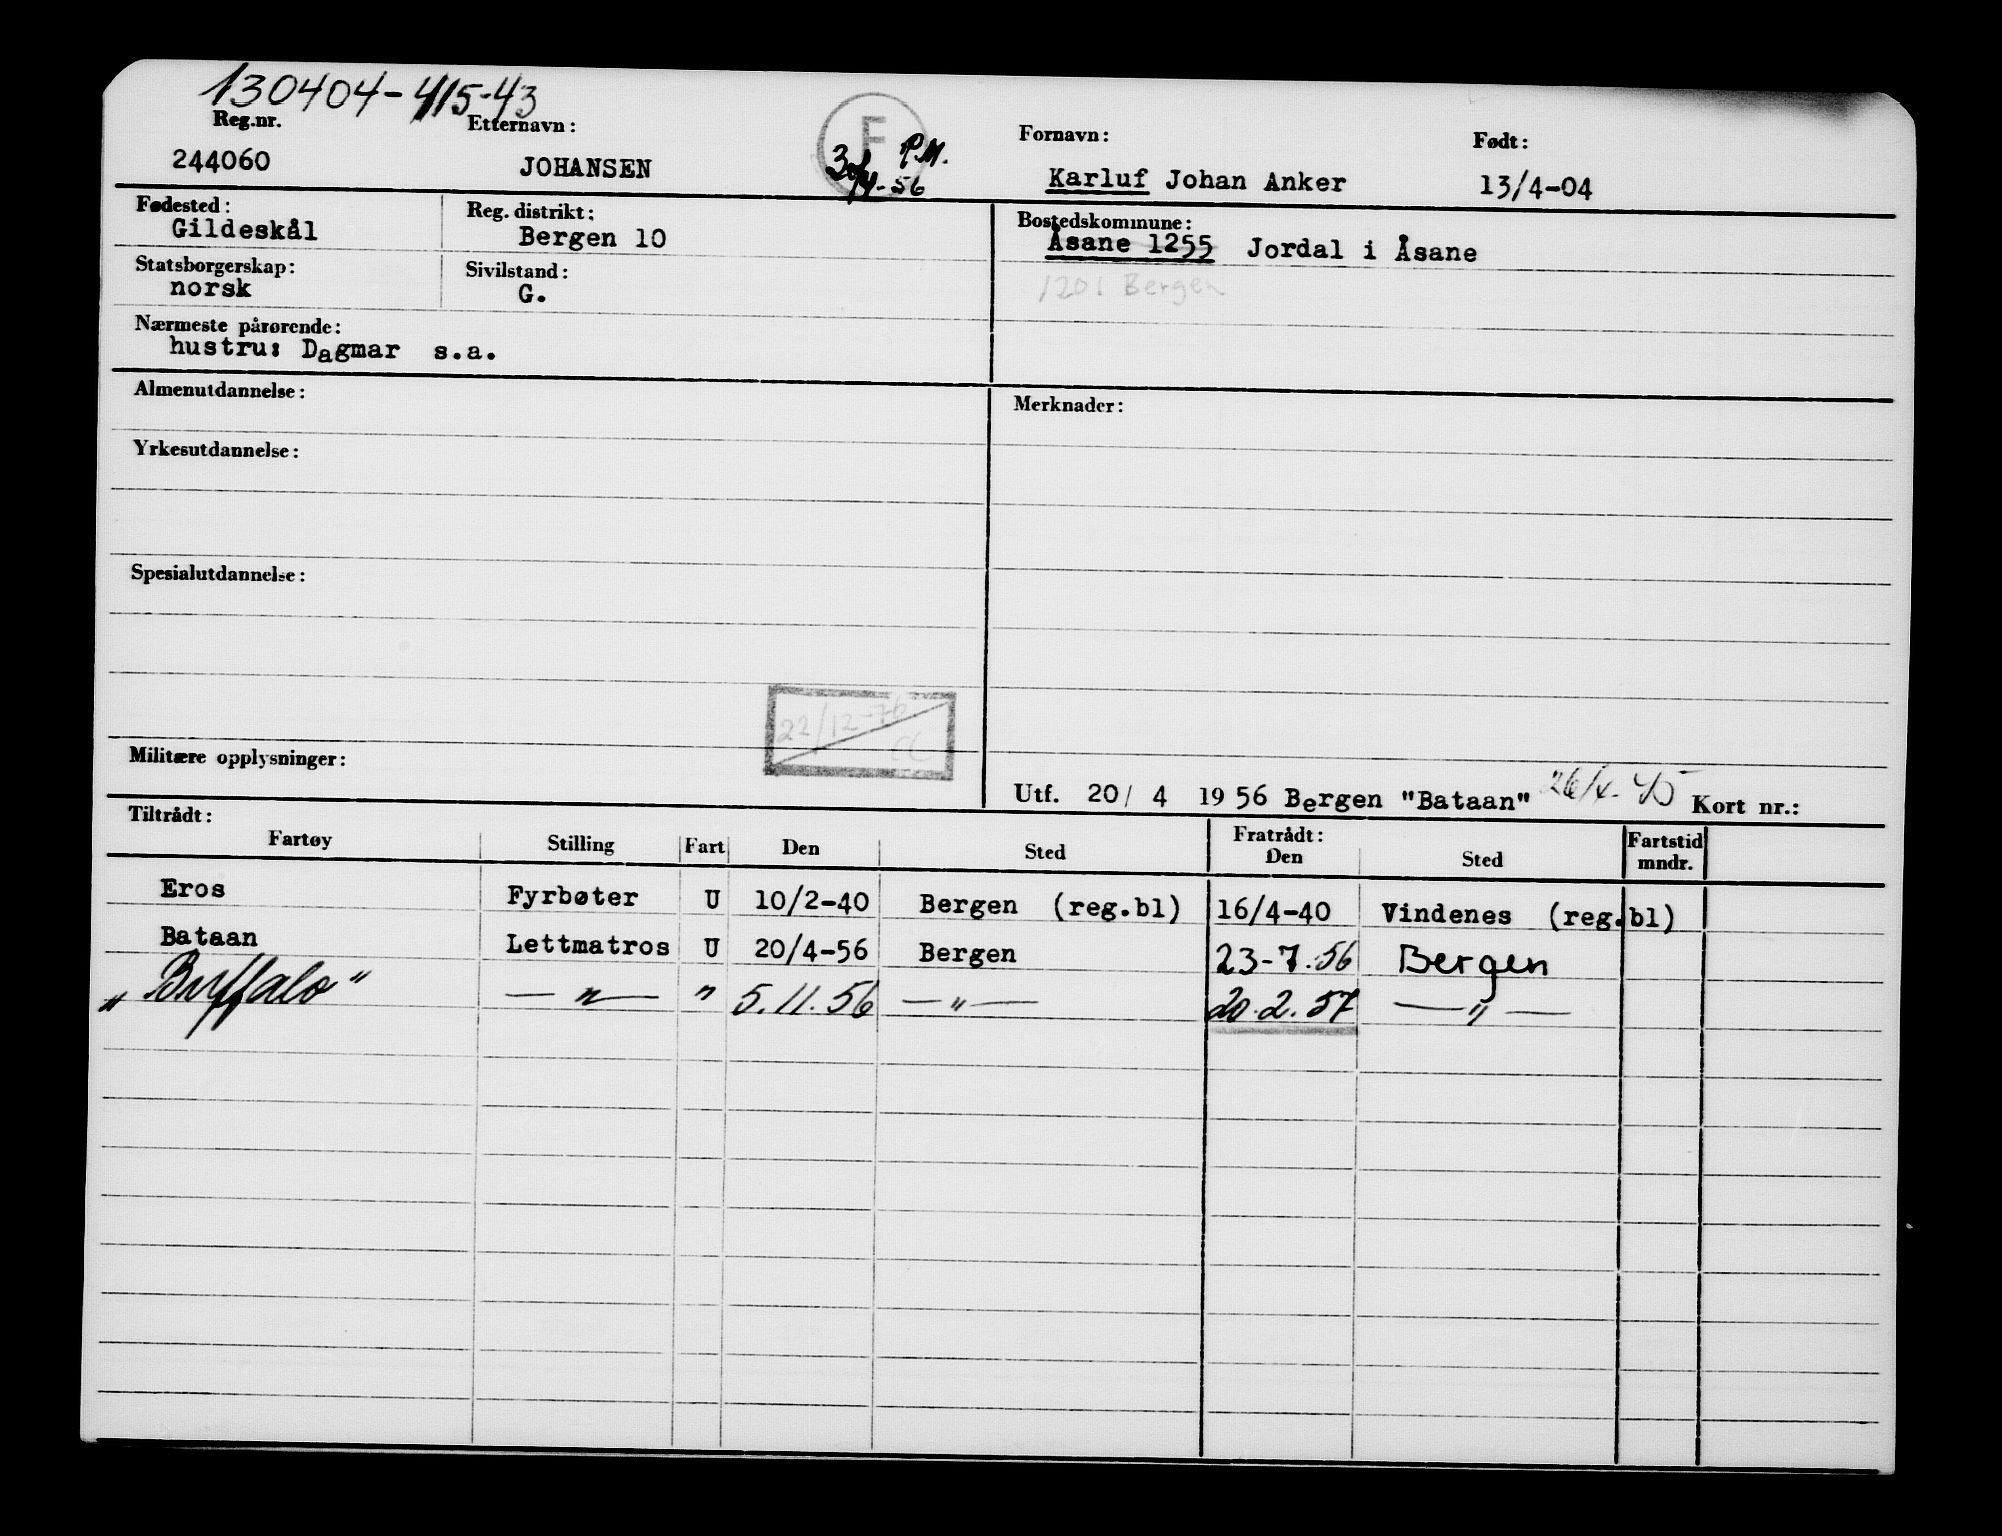 130404-415-43
Reg.nr. Etternavn: F Fornavn: Født:
244060 JOHANSEN 30/4-56 P.M. Karluf Johan Anker 13/4-04
Fødested: Reg. distrikt: Bostedskommune:
Gildeskål Bergen 10 Åsane 1255 Jordal i Åsane
Statsborgerskap: Sivilstand:
norsk G. 1201 Bergen
Nærmeste pårørende:
hustru: Dagmar s.a.
Almenutdannelse: Merknader:
Yrkesutdannelse:
Spesialutdannelse:
22/12-76
Militære opplysninger:
Utf. 20/ 4 1956 Bergen "Bataan" Kort nr.:
Tiltrådt: Fratrådt: Fartstid
Fartøy Stilling Fart Den Sted Den Sted mndr.
Eros Fyrbøter U 10/2-40 Bergen (reg.bl) 16/4-40 Vindenes (reg.bl)
Bataan Lettmatros U 20/4-56 Bergen 23-7.56 Bergen
"Buffalo" — " — " 5.11.56 — " — 20.2.57 — " —